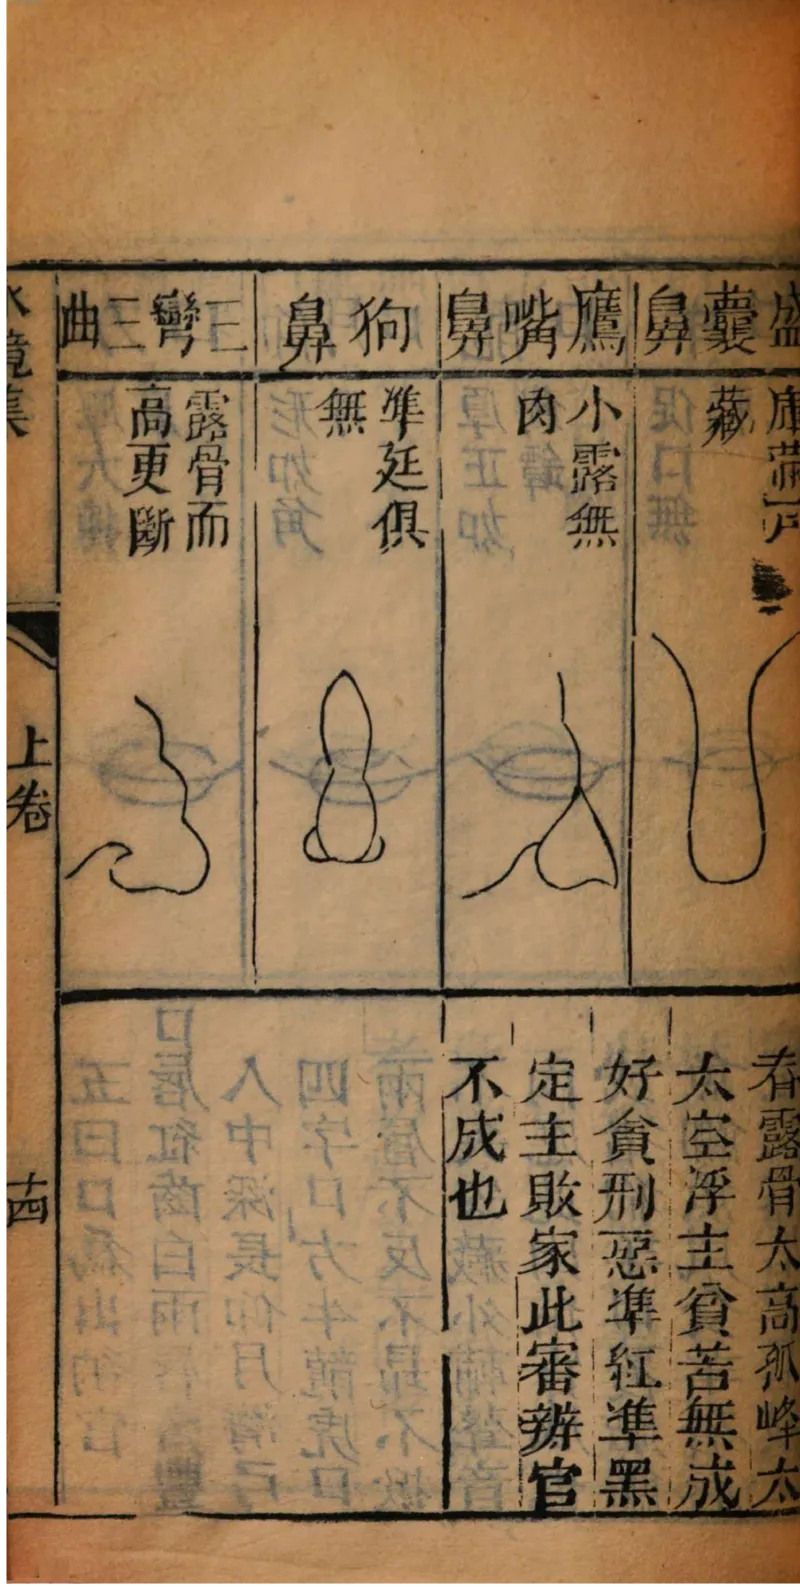 盛囊鼻
庫藏戶
藏
鷹嘴鼻
小露無
肉
狗鼻
準廷俱
無
三彎三曲
露骨而
高更斷
春露骨太高孤峰太
太空浮主貧苦無成
好貪刑惡準紅準黑
定主敗家此審辨官
不成也
水鏡集
上卷
十四